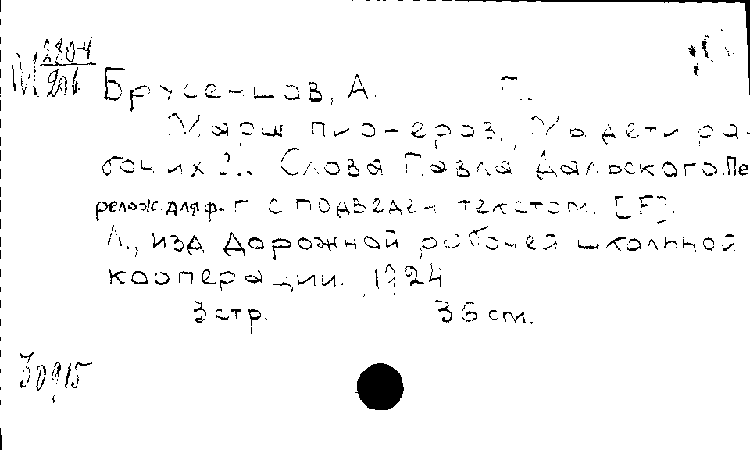 М 2804/206
Брусенцов, А. Г.
Марш пионеров. „Мы дети ра-
бочих".. Слова Павла Дальского. Пе
релож. для ф.-п с подведен текстом. [F].
Л., изд Дорожной рабочей школьной
кооперации. 1924
3 стр. 35 cm.
30915